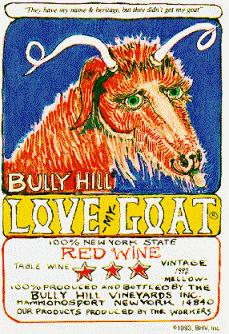 "They have my name & heritage, but they didn't get my goat"
BULLY HILL
LOVE MY GOAT®
100% NEW YORK STATE
RED WINE
TABLE WINE
VINTAGE
MELLOW
100% PRODUCED AND BOTTLED BY THE
BULLY HILL VINEYARDS INC.
HAMMONDSPORT NEW YORK 14840
OUR PRODUCTS PRODUCED BY THE WORKERS
©1993, BHV, Inc.